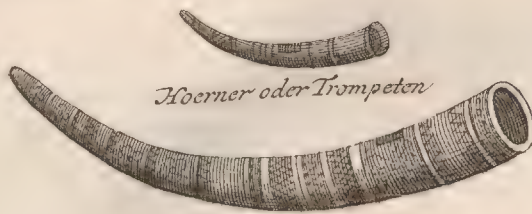 Hoerner oder Trompeten